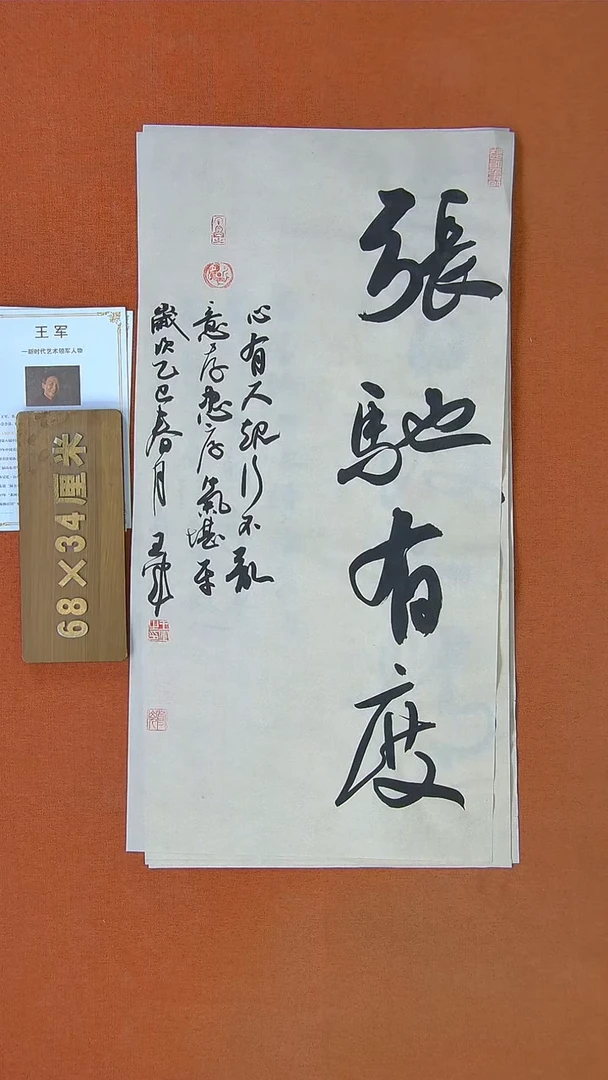 張馳有度
心有尺规行不乱
意存
度氣堪平
歲次乙巳春月 王軍
王 军
一新时代艺术领军人物
68×34厘米